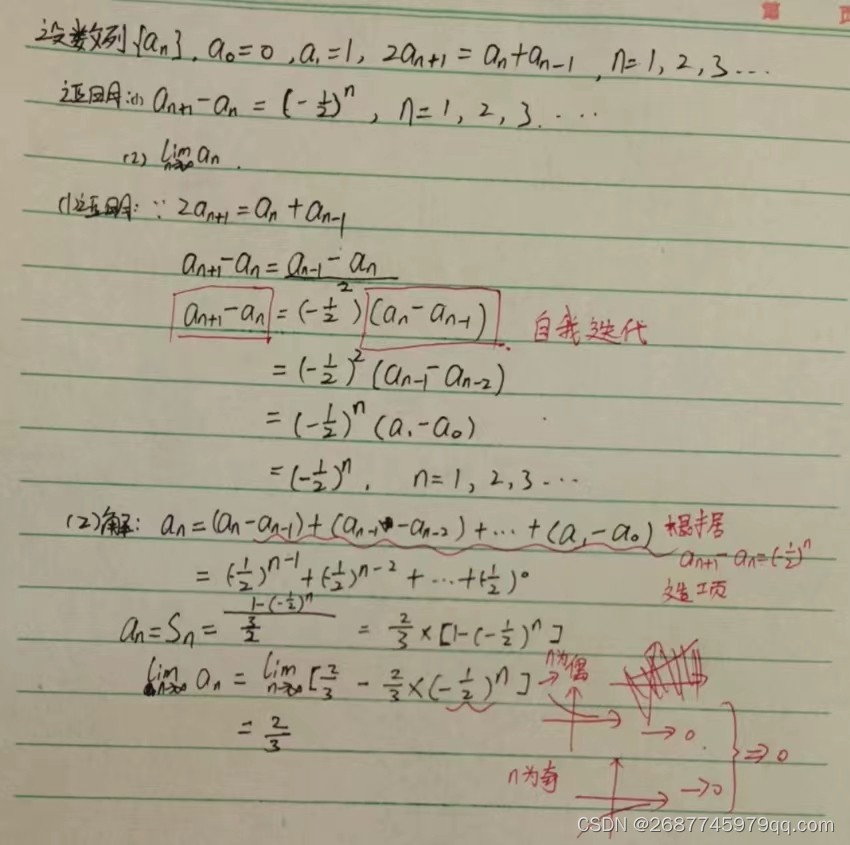 第 页
设数列{aₙ}, a₀=0, a₁=1, 2aₙ₊₁=aₙ+aₙ₋₁, n=1, 2, 3…
证明:(1) aₙ₊₁-aₙ=(-1/2)ⁿ, n=1, 2, 3.…
(2) lim n→∞ aₙ.
(1)证明:∵ 2aₙ₊₁=aₙ+aₙ₋₁
aₙ₊₁-aₙ=(aₙ₋₁-aₙ)/2
aₙ₊₁-aₙ=(-1/2)(aₙ-aₙ₋₁) 自我迭代
=(-1/2)²(aₙ₋₁-aₙ₋₂)
=(-1/2)ⁿ(a₁-a₀)
=(-1/2)ⁿ, n=1, 2, 3…
(2)解: aₙ=(aₙ-aₙ₋₁)+(aₙ₋₁-aₙ₋₂)+…+(a₁-a₀) 根据
aₙ₊₁-aₙ=(-1/2)ⁿ
=(-1/2)ⁿ⁻¹+(-1/2)ⁿ⁻²+…+(-1/2)⁰
aₙ=Sₙ=(1-(-1/2)ⁿ)/(3/2)=2/3×[1-(-1/2)ⁿ]
lim n→∞ aₙ=lim n→∞[2/3-2/3×(-1/2)ⁿ]→n为偶
=2/3 →0
⇒0
n为奇 →0
CSDN @2687745979qq.com